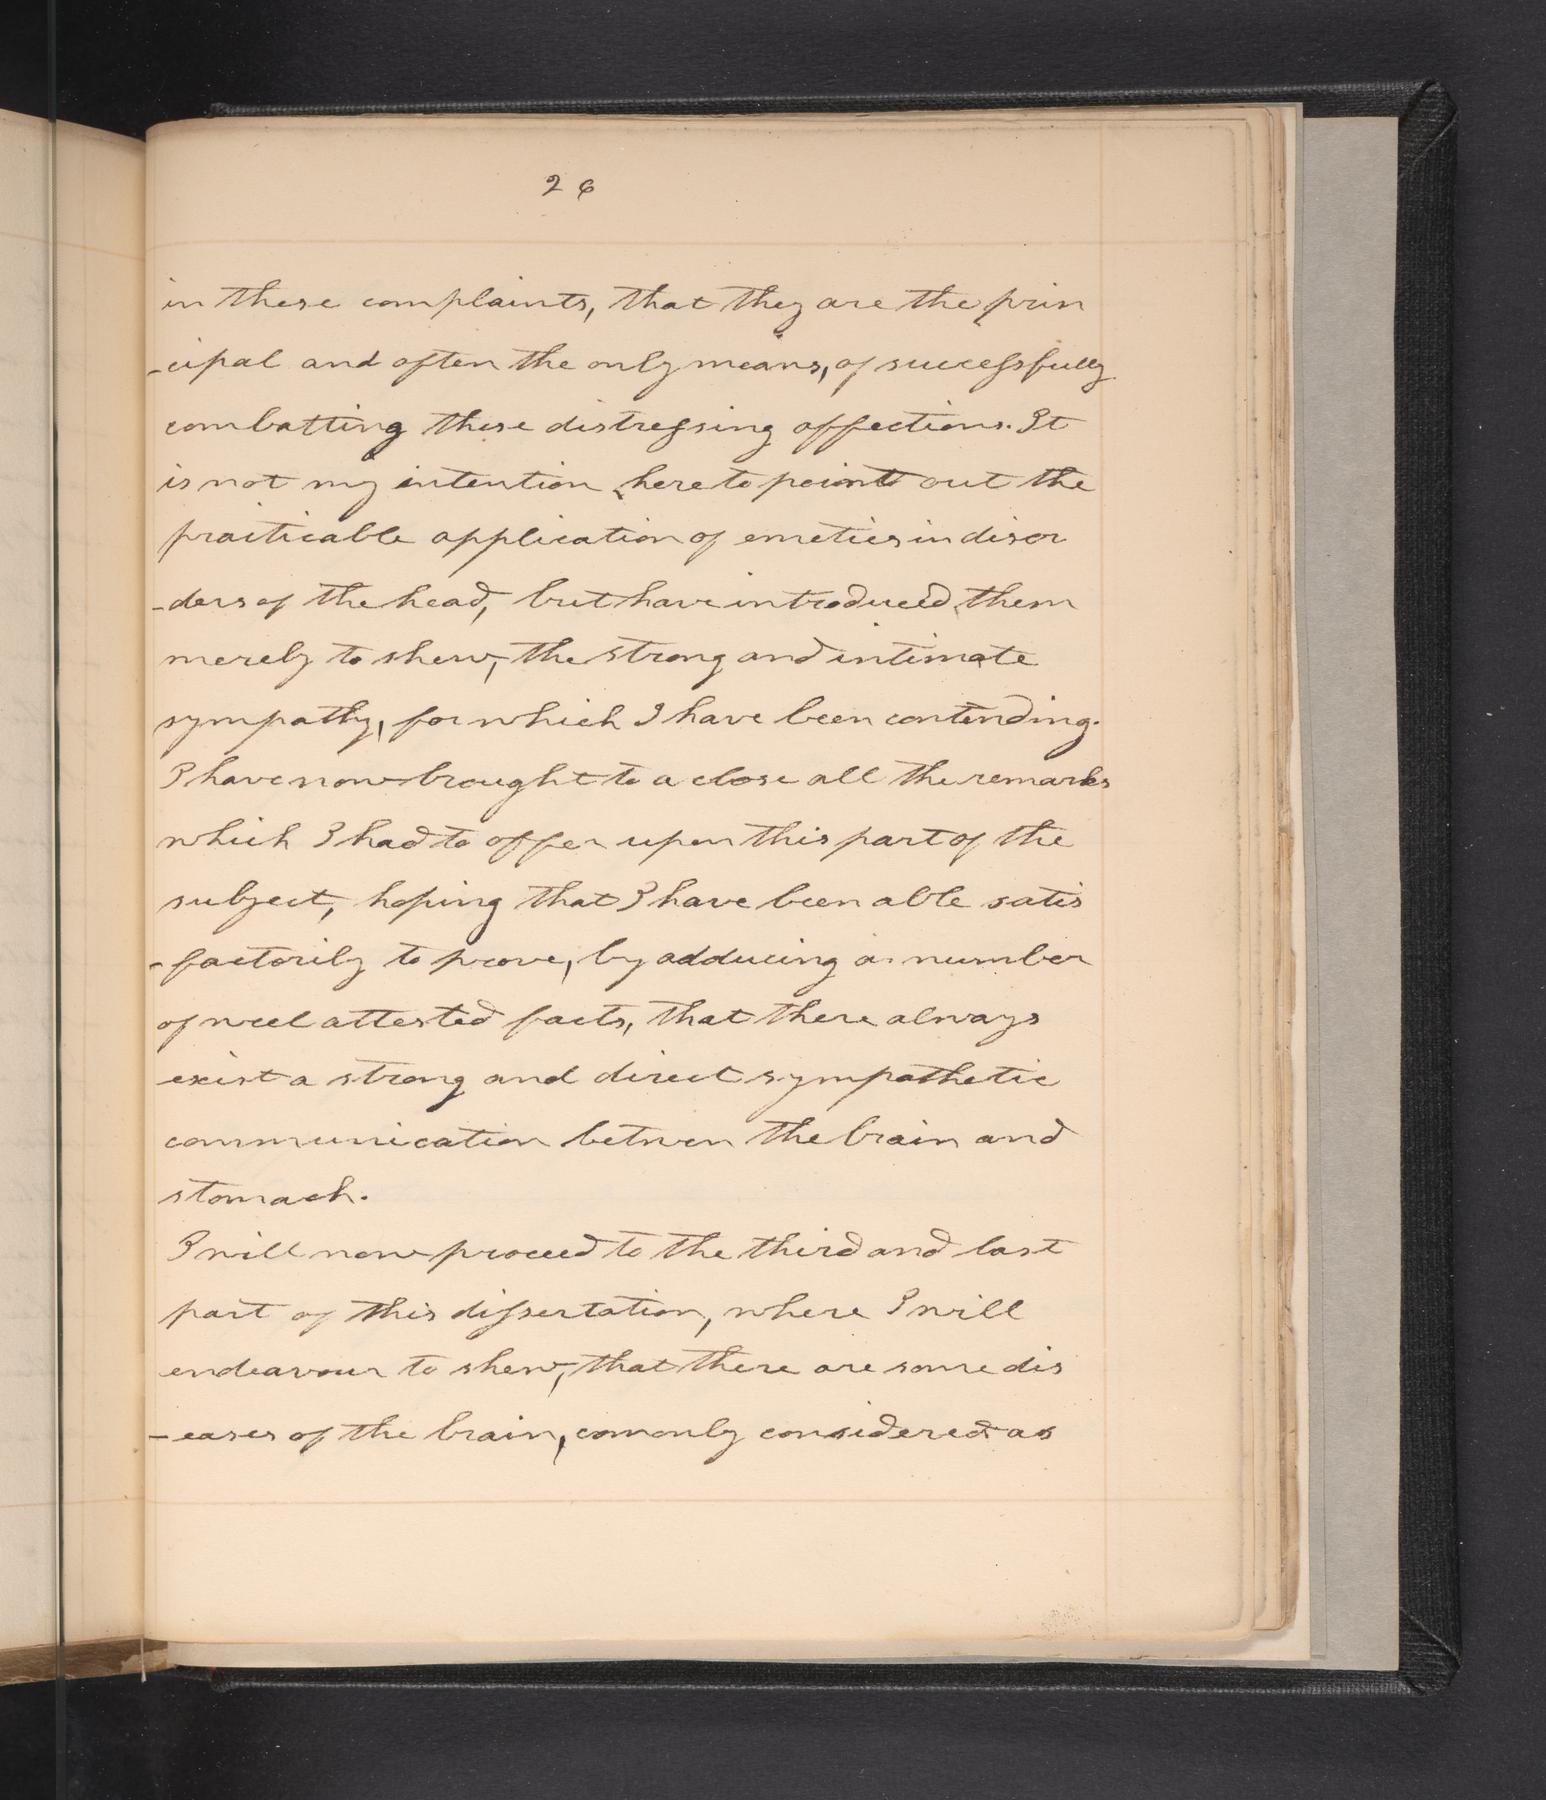 26
in these complaints, that they are the prin
-cipal and often the only means, of successfully
combatting these distressing affections. It
is not my intention here to point out the
practicable application of emetics in disor
-ders of the head, but have introduced them
merely to shew, the strong and intimate
sympathy, for which I have been contending.
I have now brought to a close all the remarks
which I had to offer upon this part of the
subject, hoping that I have been able satis
-factorily to prove, by adducing a number
of well attested facts, that there always
exist a strong and direct sympathetic
communication between the brain and
stomach.
I will now proceed to the third and last
part of this dissertation, where I will
endeavour to shew, that there are some dis
-eases of the brain, comonly considered as